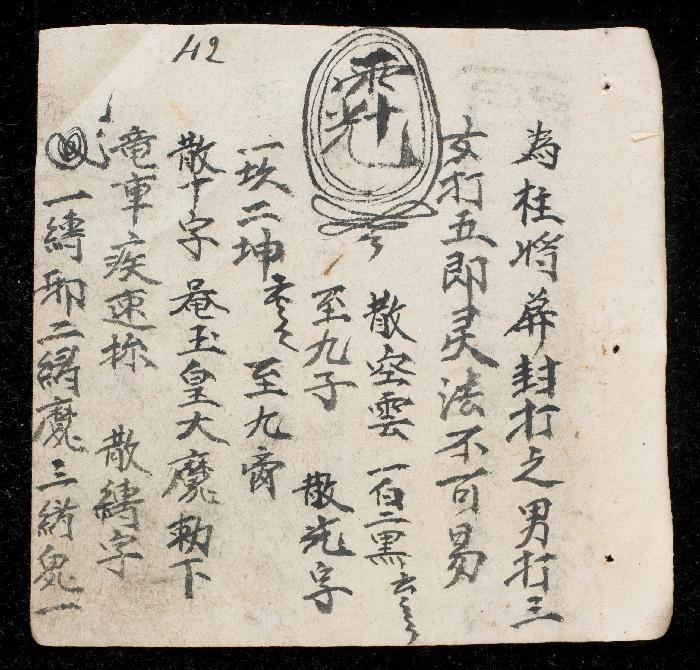 42
為柱將符封打之男打三
女打五即灵法不可易
散空雲 一白二黑云々
至九子 散字
一坎二坤云々至九
散十字 奄玉皇大魔勅下
竜車疾速 散縛字
一縛邪二縛魔三縛鬼一